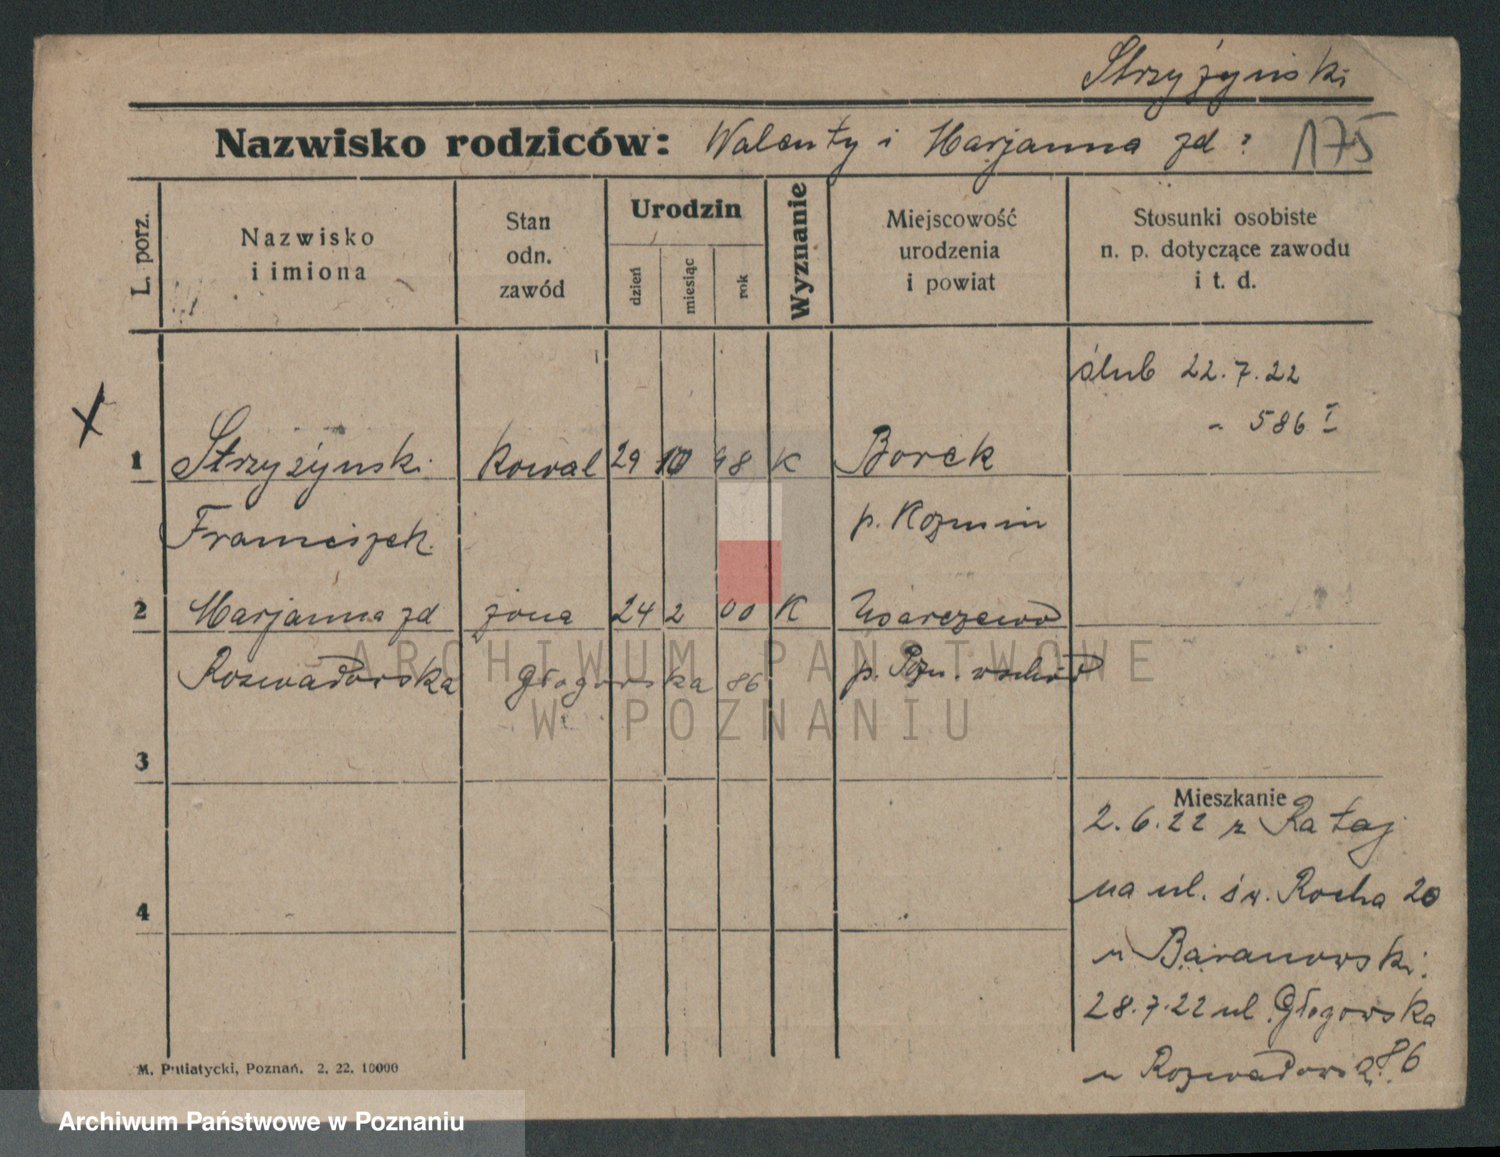 Strzyżynski
Nazwisko rodziców: Walenty i Marjanna zd ? 175
L. porz.
Nazwisko
i imiona
Stan
odn.
zawód
Urodzin
dzień
miesiąc
rok
Wyznanie
Miejscowość
urodzenia
i powiat
Stosunki osobiste
n. p. dotyczące zawodu
i t. d.
ślub 22.7.22
- 586 I
X
1 Strzyżynski kowal 29 10 98 K Borek
Franciszek p. Kozmin
2 Marjanna zd żona 24 2 00 K Uzarzewo
Rozwadowska Głogowska 86 p. Pozn. wschód
ARCHIWUM PAŃSTWOWE
W POZNANIU
3
Mieszkanie
2.6.22 z Rataj
na ul. św. Rocha 20
u Baranowski.
4
28.7.22 ul. Głogowska
86
u Rozwadowsk.
M. Putiatycki, Poznań. 2. 22. 10000
Archiwum Państwowe w Poznaniu